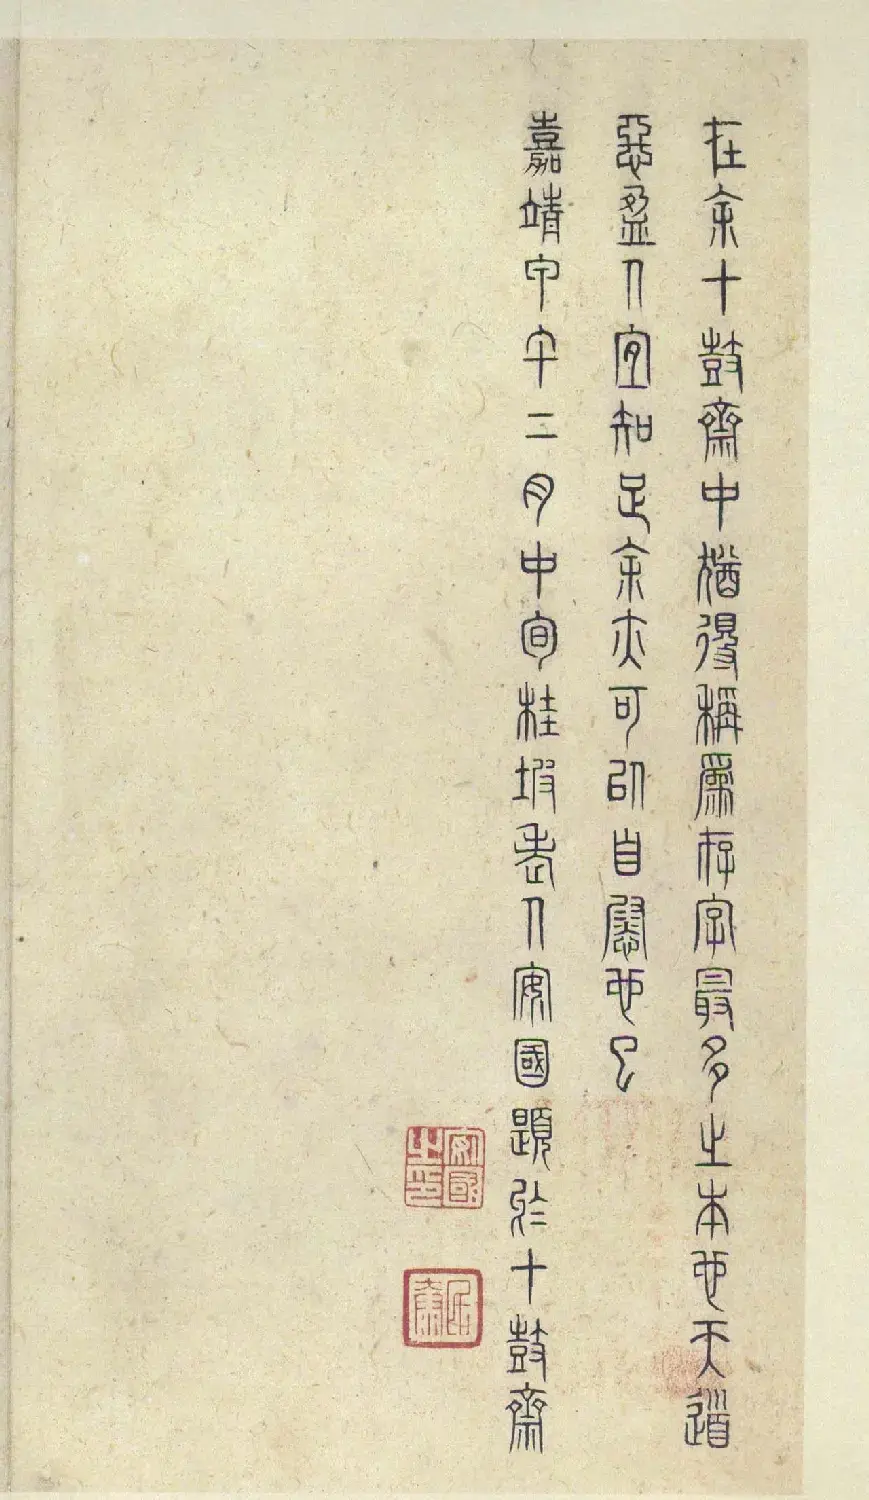 在余十鼓齋中猶得稱為存字最多之本也天道
惡盈人宜知足余亦可以自慰也已
嘉靖甲午二月中旬桂坡老人安國題於十鼓齋
安國之印